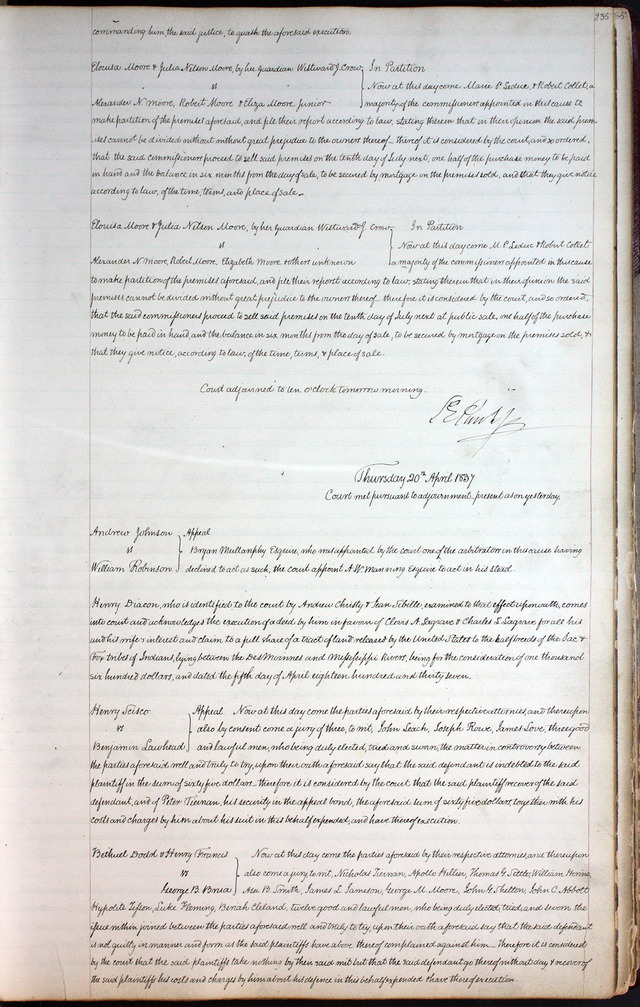 235
commanding him, the said justice, to quash the aforesaid execution.
Elouisa Moore & Julia Nilson Moore, by her guardian Westward J. Crow In Partition
vs Now at this day come Marie P. Leduc, & Robert Collet, a
Alexander N Moore, Robert Moore & Eliza Moore Junior majority of the commissioner appointed in this cause to
make partition of the premises aforesaid, and file their report according to law, stating therein that in their opinion the said prem
ises cannot be divided without without great prejudice to the owners thereof thereof it is considered by the court, and so ordered,
that the said commissioner proceed to sell said premises on the tenth day of July next, one half of the purchase money to be paid
in hand and the balance in six months from the day of sale, to be secured by mortgage in the premises sold, and that they give notice
according to law, of the time, terms, and place of sale.
Elouisa Moore & Julia Nilson Moore, by her Guardian Westward J. Crow In Partition
vs Now at this day come M. P. Leduc & Robert Collet
Alexander N Moore, Robert Moore, Elizabeth Moore & others unknown a majority of the commissioners appointed in this cause
to make partition of the premises aforesaid, and file their report according to law, stating therein that in their opinion the said
premises cannot be divided without great prejudice to the owners thereof therefore it is considered by the court, and so ordered,
that the said commissioners proceed to sell said premises on the tenth day of July next at public sale, one half of the purchase
money to be paid in hand and the balance in six months from the day of sale, to be secured by mortgage on the premises sold, &
that they give notice, according to law, of the time, terms, & place of sale.
Court adjourned to ten o'clock tomorrow morning.
Thursday 20th April 1837
Court met pursuant to adjournment present as on yesterday.
Andrew Johnson Appeal
vs Bryan Mullanphy Esquire, who was appointed by the court one of the arbitrators in this cause having
William Robinson declined to act as such, the court appoint A. W. Manning Esquire to act in his stead.
Henry Deacon, who is identified to the court by Andrew Christy & Jean Sibille, examined to that effect upon oath, comes
into court and acknowledges the execution of a deed by him in favor of Clovis A. Lagrave & Charles L. Lagrave for all his
and his wife's interest and claim to a full share of a tract of land released by the United States to the half breeds of the Sac &
Fox tribes of Indians, lying between the Des Moinnes and Mississippi Rivers, being for the consideration of one thousand
six hundred dollars, and dated the fifth day of April eighteen hundred and thirty seven.
Henry Scisco Appeal Now at this day come the parties aforesaid by their respective attornies, and thereupon
vs also by consent come a jury of three, to wit, John Leach, Joseph Rowe, James Love, three good
Benjamin Lawhead and lawful men, who being duly elected, tried and sworn, the matter in controversy between
the parties aforesaid well and truly to try, upon their oath aforesaid say that the said defendant is indebted to the said
plaintiff in the sum of sixty five dollars therefore it is considered by the court that the said plaintiff recover of the said
defendant, and of Peter Tiernan, his security in the appeal bond, the aforesaid sum of sixty five dollars, together with his
costs and charges by him about his suit in this behalf expended, and have thereof execution.
Bethuel Dodd & Henry Francis Now at this day come the parties aforesaid by their respective attornies, and thereupon
vs also come a jury to wit, Nicholas Tiernan, Apollo Hellier, Thomas G. Settle, William Henne,
George B. Brua Asa B. Smith, James L. Jameson, George M. Moore, John G. Shelton, John C. Abbott
Hypolite Luke Fleming, Benah Cleland, twelve good and lawful men, who being duly elected, tried, and sworn the
issue within joined between the parties aforesaid, well and truly to try upon their oath aforesaid say that the said defendant
is not guilty in manner and form as the said plaintiffs have above thereof complained against him. Therefore it is considered
by the court that the said plaintiffs take nothing by their said writ but that the said defendant go thereof without day & recover of
the said plaintiffs his costs and charges by him about his defence in this behalf expended & have thereof execution.